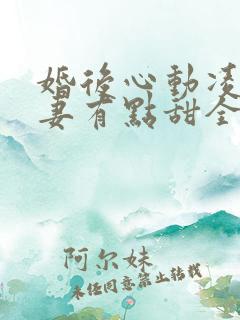 婚後心動凌
妻有點甜全
阿尔妹
未经同意禁止转载